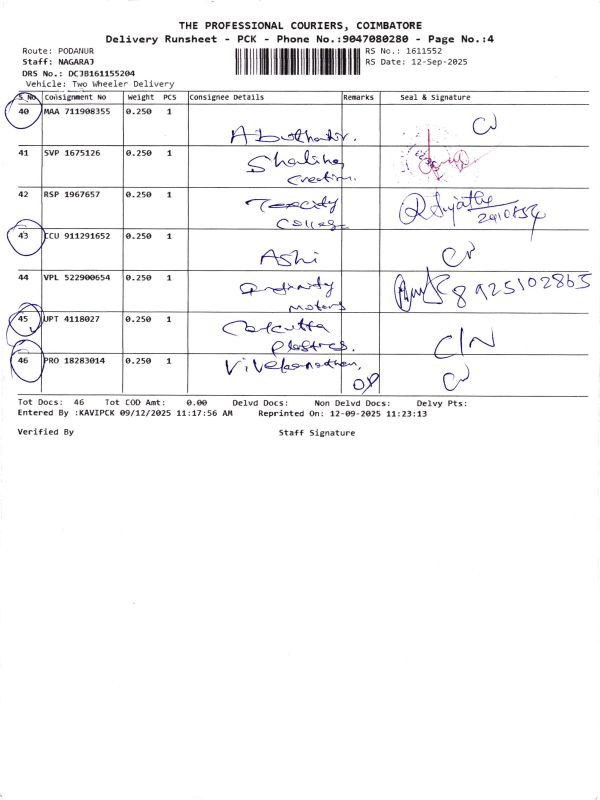 THE PROFESSIONAL COURIERS, COIMBATORE
Delivery Runsheet - PCK - Phone No.:9047080280 - Page No.:4
Route: PODANUR
RS No.: 1611552
Staff: NAGARAJ
RS Date: 12-Sep-2025
DRS No.: DCJB161155204
Vehicle: Two Wheeler Delivery
S No. Consignment No Weight PCS Consignee Details Remarks Seal & Signature
40 MAA 711908355 0.250 1
41 SVP 1675126 0.250 1
42 RSP 1967657 0.250 1
College
43 CCU 911291652 0.250 1
Ashi
44 VPL 522900654 0.250 1 8925102865
motors
45 UPT 4118027 0.250 1 Calcutta
Plastics. C/N
46 PRO 18283014 0.250 1
Tot Docs: 46 Tot COD Amt: 0.00 Delvd Docs: Non Delvd Docs: Delvy Pts:
Entered By :KAVIPCK 09/12/2025 11:17:56 AM Reprinted On: 12-09-2025 11:23:13
Verified By Staff Signature